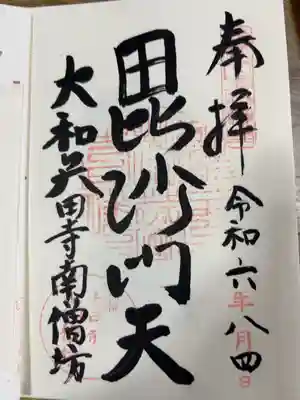 奉拝 令和六年八月四日
毘沙門天
大和矢田寺南僧坊